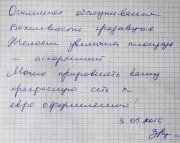 Отличное обслуживание
Вежливости продавцов
Желаем увеличить площадь
и ассортимент
Можно приравнять вашу
прекрасную сеть к
евро оформлению!
3.05.2015